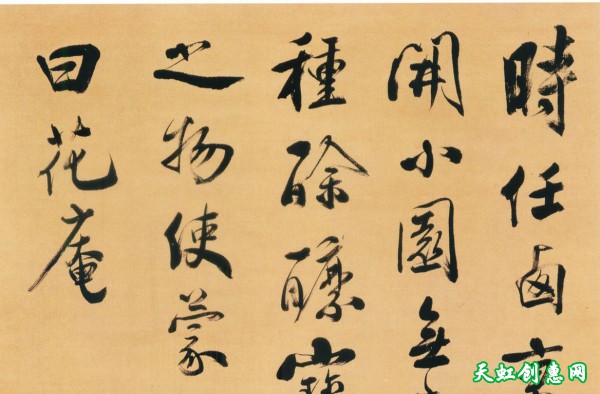 時任鹵
開小園無
種酴醿
之物使蒙
曰花庵
天虹创惠网